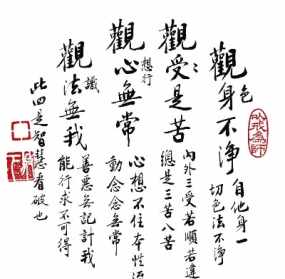 色
觀身不淨
自他身一
切色法不淨
觀受是苦
內外三受若順若違
總是三苦八苦
想行
觀心無常
心想不住本性
動念念無常
識
觀法無我
善惡無記計我
能行求不可得
此四是智慧看破也
以戒為師